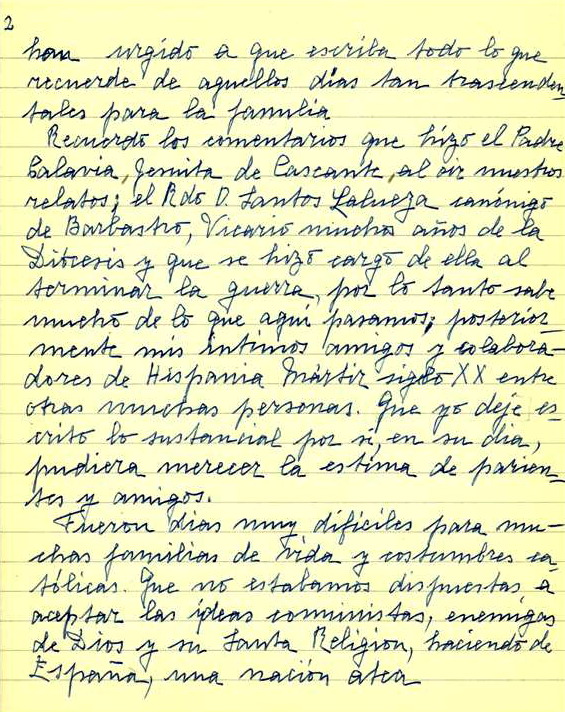 2
han urgido a que escriba todo lo que
recuerde de aquellos días tan trascenden_
tales para la familia
Recuerdo los comentarios que hizo el Padre
Calavia, Jesuita de Cascante, al oir nuestros
relatos; el Rdo D. Santos Lalueza canónigo
de Barbastro, Vicario muchos años de la
Diócesis y que se hizo cargo de ella al
terminar la guerra, por lo tanto sabe
mucho de lo que aquí pasamos; posterior_
mente mis íntimos amigos y colabora-
dores de Hispania Mártir siglo XX entre
otras muchas personas. Que yo deje es_
crito lo sustancial por si, en su dia,
pudiera merecer la estima de parien_
tes y amigos.
Fueron dias muy difíciles para mu-
chas familias de vida y costumbres ca_
tólicas. Que no estabamos dispuestas a
aceptar las ideas comunistas, enemigas
de Dios y su Santa Religion, haciendo de
España, una nación atea